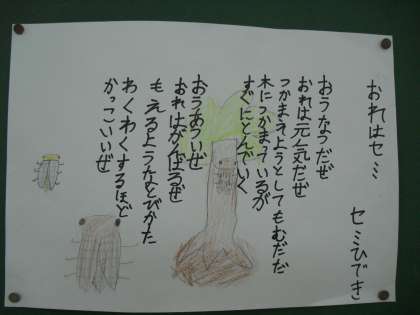 おれはセミ
セミひでき
おうなつだぜ
おれは元気だぜ
つかまえようとしてもむだだ
木につかまっているが
すぐにとんでいく
おうあついぜ
おれはがんばるぜ
もえるようなとびかた
わくわくするほど
かっこいいぜ